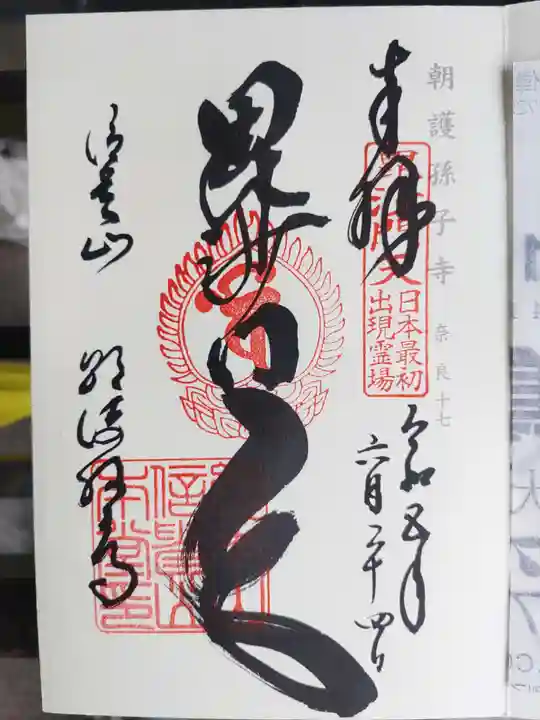 朝護孫子寺 奈良十七
奉拝
日本最初
出現霊場
令和五年
六月二十四日
毘沙門天
信貴山
朝護孫子寺